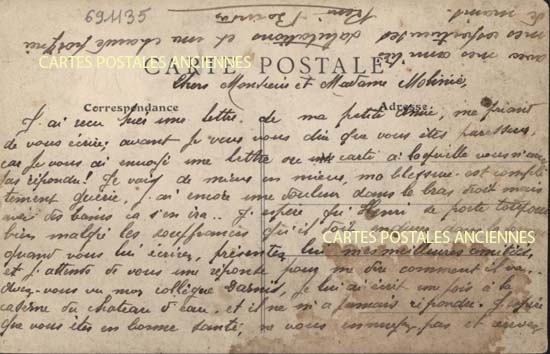 691135
CARTES POSTALES ANCIENNES
CARTE POSTALE
Chers Monsieur et Madame Molinié,
Correspondance
Adresse
J'ai reçu une lettre de ma petite me priant
de vous écrire; avant je veux vous dire que vous êtes paresseux,
car je vous ai envoyé une lettre ou carte à laquelle vous n'avez
pas répondu! Je vais de mieux en mieux, ma blessure est complè
tement guérie. J'ai encore une douleur dans le bras droit mais
avec des bains ça s'en ira. J'espère que Henri se porte toujours
bien malgré les souffrances qu'il
CARTES POSTALES ANCIENNES
quand vous lui écrivez, présentez lui mes meilleures amitiés,
et j'attends de vous une réponse pour me dire comment il va.
Avez-vous vu mon collègue je lui ai écrit une fois à la
caserne du chateau d'eau et il ne m'a jamais répondu. J'espère
que vous êtes en bonne santé, ne vous ennuyez pas et
avec mes amitiés
mes salutations et une chaude poignée
de main.